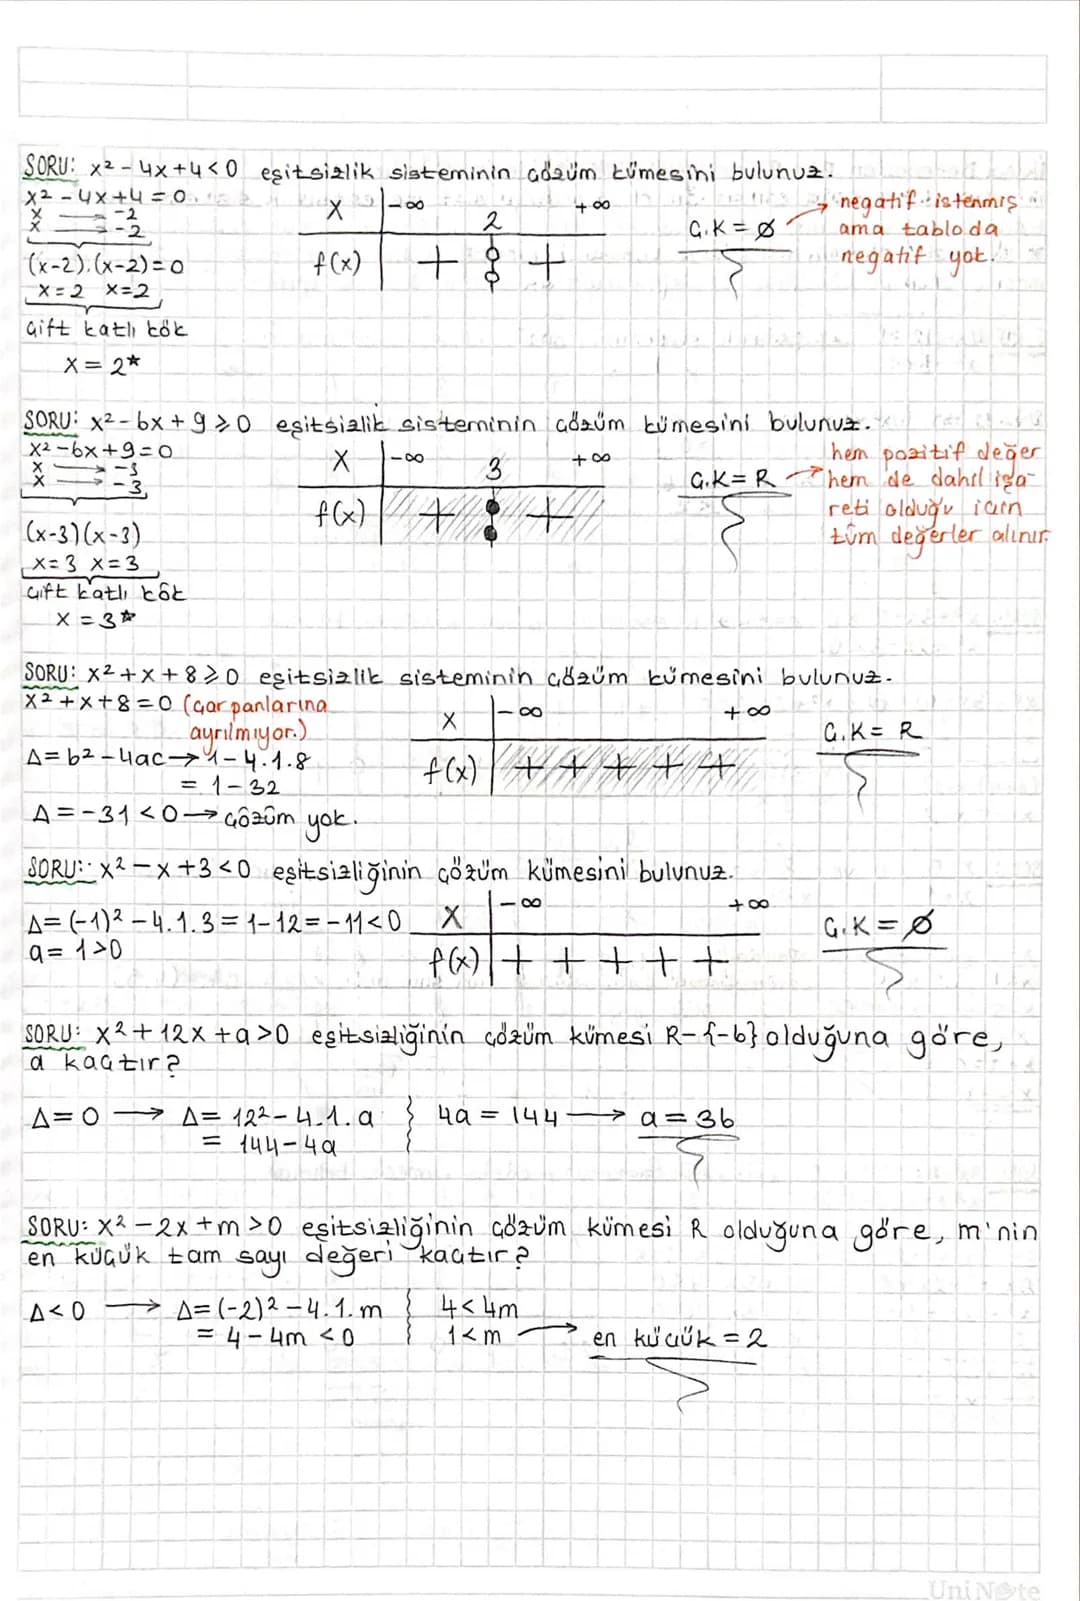 SORU: x² - 4x + 4 < 0 eşitsizlik sisteminin çözüm kümesini bulunuz.
x² - 4x + 4 = 0
x → -2
x → -2
(x-2).(x-2) = 0
x = 2 x = 2
çift katlı kök
x = 2*
x -∞ 2 +∞
f(x) + +
Ç.K = ∅
negatif istenmiş
ama tabloda
negatif yok.
SORU: x² - 6x + 9 ⩾ 0 eşitsizlik sisteminin çözüm kümesini bulunuz.
x² - 6x + 9 = 0
x → -3
x → -3
(x-3)(x-3)
x = 3 x = 3
çift katlı kök
x = 3*
x -∞ 3 +∞
f(x) + +
Ç.K = R
hem pozitif değer
hem de dahil işa-
reti olduğu için
tüm değerler alınır.
SORU: x² + x + 8 ⩾ 0 eşitsizlik sisteminin çözüm kümesini bulunuz.
x² + x + 8 = 0 (çarpanlarına
ayrılmıyor.)
Δ = b² - 4ac → 1 - 4.1.8
= 1 - 32
Δ = -31 < 0 → çözüm yok.
x -∞ +∞
f(x) + + + + +
Ç.K = R
SORU: x² - x + 3 < 0 eşitsizliğinin çözüm kümesini bulunuz.
Δ = (-1)² - 4.1.3 = 1 - 12 = -11 < 0
a = 1 > 0
x -∞ +∞
f(x) + + + + +
Ç.K = ∅
SORU: x² + 12x + a > 0 eşitsizliğinin çözüm kümesi R - {-6} olduğuna göre,
a kaçtır?
Δ = 0 → Δ = 12² - 4.1.a } 4a = 144 → a = 36
= 144 - 4a
SORU: x² - 2x + m > 0 eşitsizliğinin çözüm kümesi R olduğuna göre, m'nin
en küçük tam sayı değeri kaçtır?
Δ < 0 → Δ = (-2)² - 4.1.m } 4 < 4m
= 4 - 4m < 0 } 1 < m → en küçük = 2
UniNote